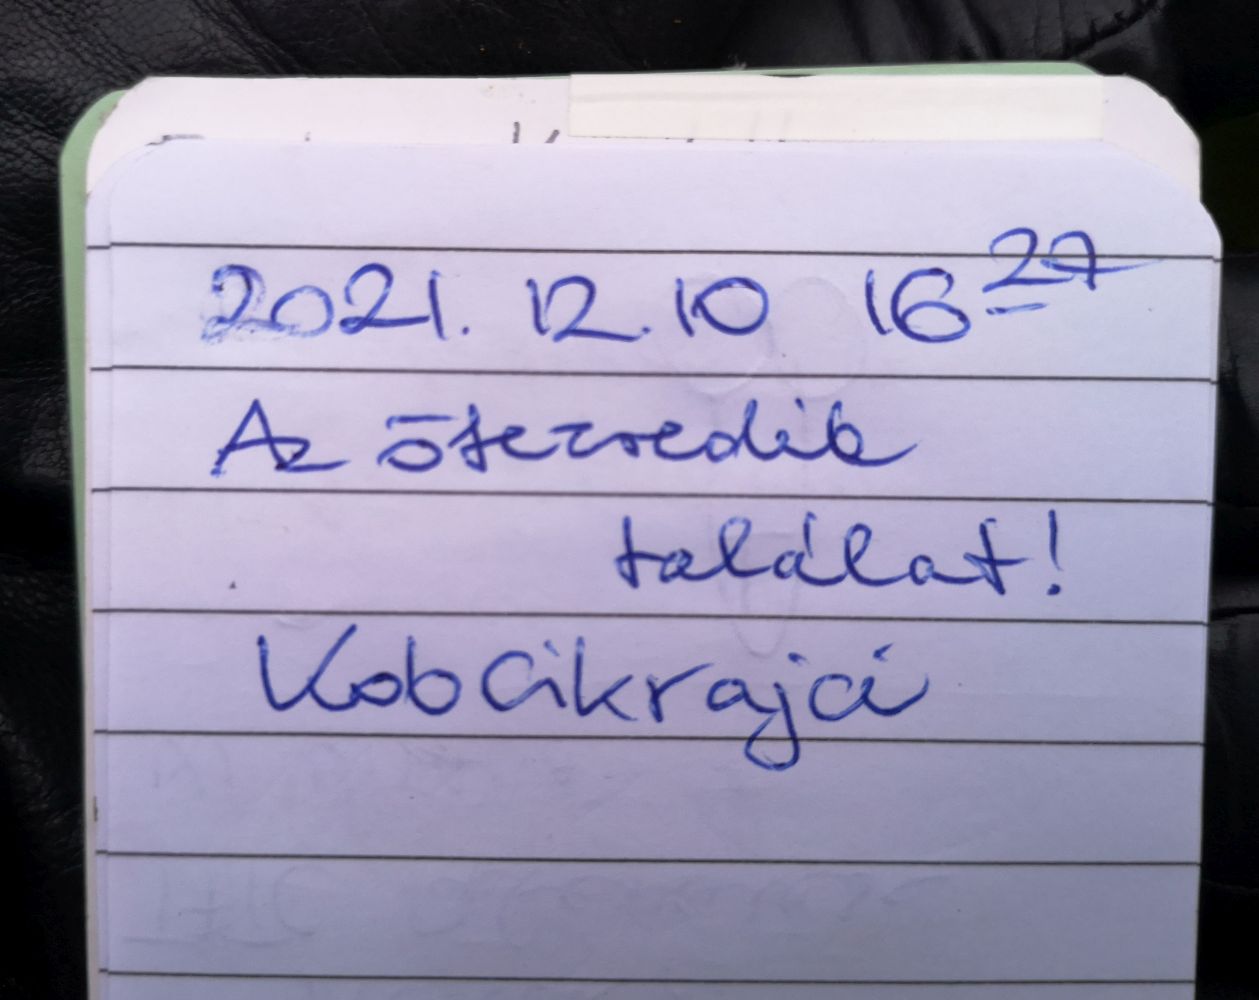 2021. 12. 10 16 27
Az ötezredik
találat!
Kobcikrajcí